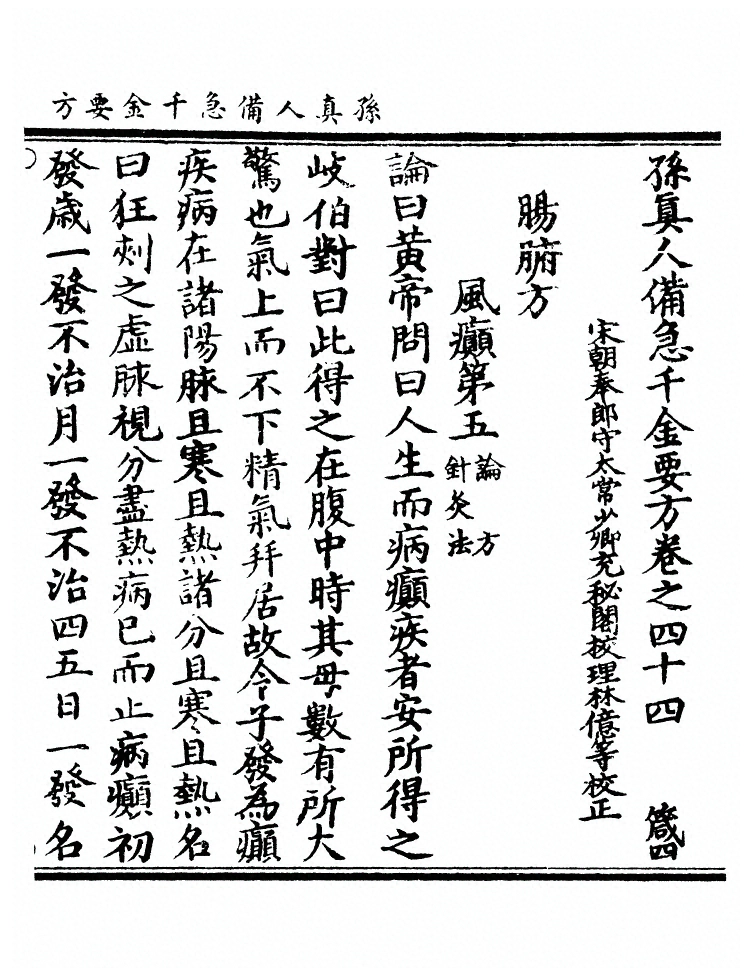 孫真人備急千金要方
孫眞人備急千金要方卷之四十四 箴四
宋朝奉郎守太常少卿充秘閣挍理林億等挍正
腸腑方
風癲第五 論 方 針灸法
論曰黃帝問曰人生而病癲疾者安所得之
岐伯對曰此得之在腹中時其母數有所大
驚也氣上而不下精氣并居故令子發為癲
疾病在諸陽脉且寒且熱諸分且寒且熱名
曰狂刺之虛脉視分盡熱病已而止病癲初
發歲一發不治月一發不治四五日一發名